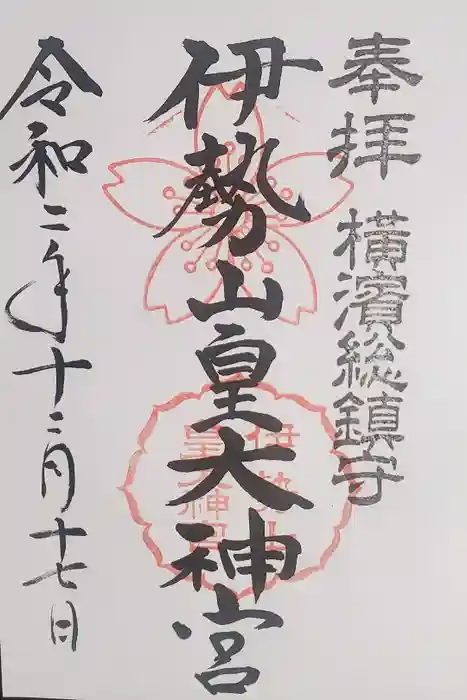 奉拝 横濱総鎮守
伊勢山皇大神宮
伊勢山
皇大神宮
令和二年十二月十七日